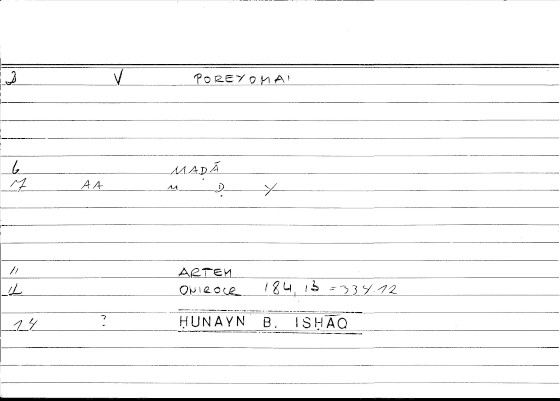 3 V POREYOMAI
6 MAḌĀ
7 AA M Ḍ Y
11 ARTEM
12 ONIROCR 184, 13 = 334.12
14 ? HUNAYN B. ISḤĀQ